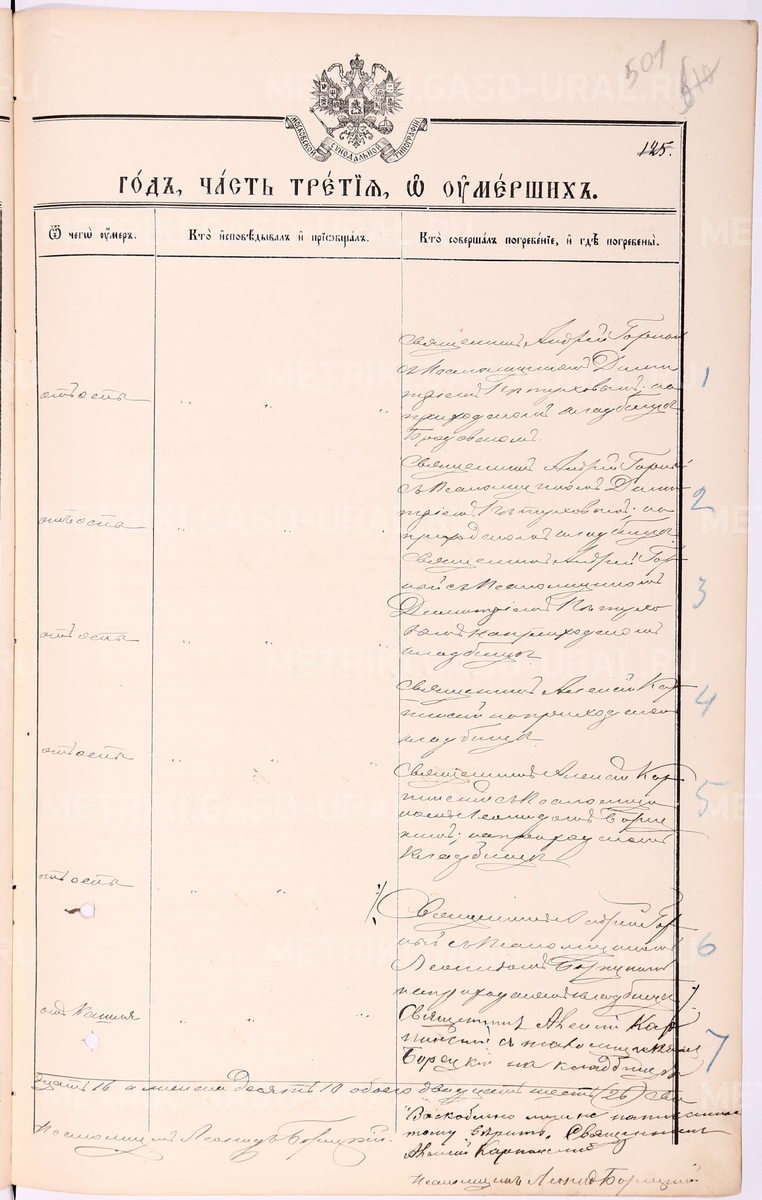 501
МОСКОВСКОЙ СѴНОДАЛЬНОЙ ТИПОГРАФІИ
125.
ГО́ДЪ, ЧА́СТЬ ТРЕ́ТІѦ, Ѡ҆ ОУ҆МЕ́РШИХЪ.
Ѿ чегѡ̀ оу҆́меръ.
Кто̀ и҆сповѣ́дывалъ и҆ прїѡбща́лъ.
Кто̀ соверша́лъ погребе́нїе, и҆ гдѣ̀ погребены̀.
отъ оспы
Священникъ Андрей Горный
съ Псаломщикомъ Дими
тріемъ Пѣтуховымъ на
приходскомъ кладбищѣ
Бродовскомъ.
1
отъ оспы
Священникъ Андрей Горный
съ Псаломщикомъ Дими
тріемъ Пѣтуховымъ на
приходскомъ кладбищѣ
2
отъ оспы
Священникъ Андрей Гор
ный съ Псаломщикомъ
Димитріемъ Пѣтухо
вымъ на приходскомъ
кладбищѣ
3
отъ оспы
Священникъ Алексій Кар
пинскій на приходскомъ
кладбищѣ
4
отъ оспы
Священникъ Алексій Кар
пинскій съ Псаломщи
комъ Леонидомъ Борец
кимъ, на приходскомъ
кладбищѣ
5
Священникъ Андрей Гор
ный съ Псаломщикомъ
Леонидомъ Борецкимъ
на приходскомъ кладбищѣ
6
отъ Кашля
Священникъ Алексій Кар
пинскій съ псаломщикомъ
Борецкій на кладбищѣ
7
16 а женска десять 10 обоего двадцать шесть (26)
написанному вѣрить. Священникъ
Алексій Карпинскій
Псаломщикъ Леонидъ Борецкій.
Псаломщикъ Леонид Борецкий
METRIKI.GASO-URAL.RU